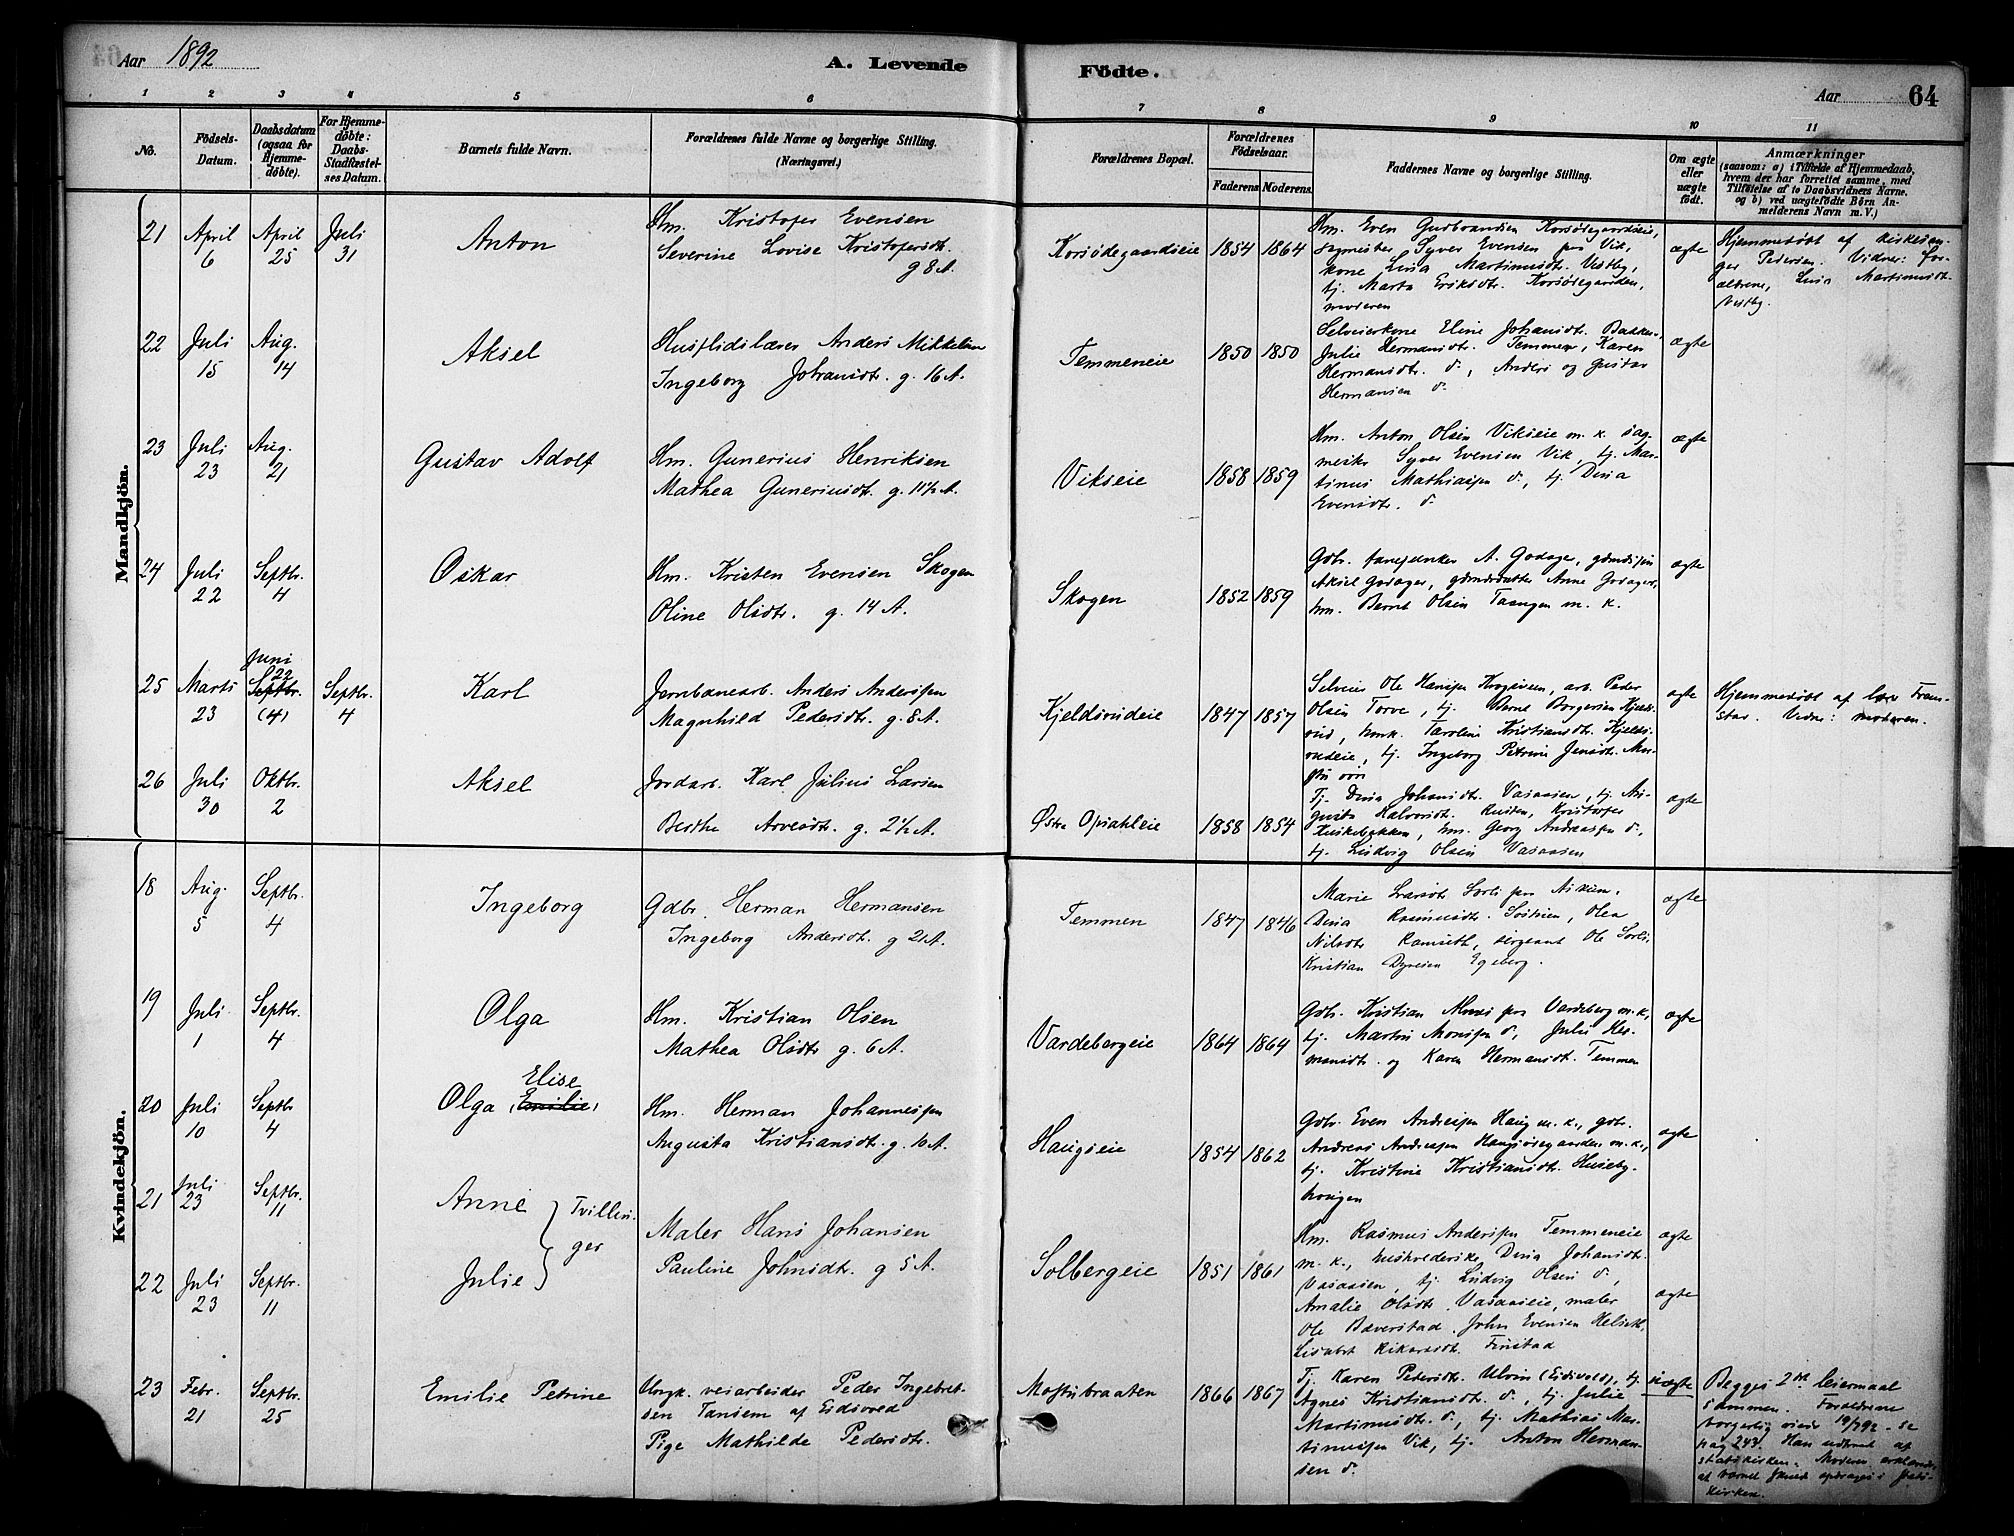 Aar 1892
A. Levende Födte.
Aar 64
1 2 3 4 5 6 7 8 9 10 11
No.
Födsels-Datum.
Daabsdatum (ogsaa for Hjemmedöbte).
For Hjemmedöbte: Daabs-Stadfæstelses Datum.
Barnets fulde Navn.
Forældrenes fulde Navne og borgerlige Stilling. (Næringsvei.)
Forældrenes Bopæl.
Forældrenes Födselsaar.
Faderens. Moderens.
Faddernes Navne og borgerlige Stilling.
Om ægte eller uægte födt.
Anmærkninger
(saasom: a) i Tilfælde af Hjemmedaab, hvem der har forrettet samme, med Tilföielse af to Daabsvidners Navne. og b) ved uægtefödte Börn Anmelderens Navn m. V.)
Mandkjön.
21 April 6 April 25 Juli 31 Anton
Hm. Kristofer Evensen
Severine Lovise Kristofersdt.
g 8 A.
Korsödegaardseie 1854 1864
Hm. Even Gudbrandsen Korsödegaardseie,
sagmester Syver Evensen fra Vik,
kone Lina Martinusdt. Vestby,
tj. Marta Eriksdt. Korsödegaarden,
moderen
ægte
Hjemmedöbt af kirkesanger Pedersen. Vidner: forældrene, Lina Martinusdt. Vestby.
22 Juli 15 Aug. 14 Aksel
Husflidslærer Anders Mikkelsen
Ingeborg Johansdt. g. 16 A.
Temmeneie 1850 1850
Selveierkone Eline Johansdt. Bakken,
Julie Hermansdt. Temmen, Karen
Hermansdtr. d., Anders og Gustav
Hermansen d.
ægte
23 Juli 23 Aug. 21 Gustav Adolf
Hm. Gunerius Henriksen
Mathea Guneriusdt. g. 11½ A.
Vikseie 1858 1859
Hm. Anton Olsen Vikseie m. k. sagmester Syver Evensen Vik, tj. Martinus Mathiasen d., tj. Dina
Evensdt. d.
ægte
24 Juli 22 Septbr. 4 Oskar
Hm. Kristen Evensen Skogen
Oline Olsdtr. g. 14 A.
Skogen 1852 1859
Gdbr. fanejunker A. Godager,
Aksel Godager, Anne Godager,
hm. Bernt Olsen m. k.
ægte
25 Marts 23 Juni 22 Septbr. (4) Septbr. 4 Karl
Jernbanearb. Anders Andersen
Magnhild Pedersdt. g. 8 A.
Kjeldsrudeie 1847 1857
Selveier Ole Hansen, arb. Peder
Olsen Torve, tj. Bernt Borgersen Kjeldsrud, hmk. Karoline Kristiansdt. Kjeldsrudeie, tj. Ingeborg Petrine Jensdt.
ægte
Hjemmedöbt af Framstad. Vidne: moderen.
26 Juli 30 Oktbr. 2 Aksel
Jordarb. Karl Julius Larsen
Berthe Arvesdt. g. 2½ A.
Østre Opsahleie 1858 1854
Tj. Dina Johansdt. Vasaasen, tj. Augusta Halvorsdt. Rusten, Kristofer
hm. Georg Andreassen d.,
tj. Ludvig Olsen Vasaasen
ægte
Kvindekjön.
18 Aug. 5 Septbr. 4 Ingeborg
Gdbr. Herman Hermansen
Ingeborg Andersdt. g 21 A.
Temmen 1847 1846
Marie Larsdt Sorli fra
Dina Rasmusdt., Olea
Nilsdtr Ramseth, sergeant Ole Sorli,
Kristian Dyresen Egeberg.
ægte
19 Juli 1 Septbr. 4 Olga
Hm. Kristian Olsen
Mathea Olsdtr g. 6 A.
Vardebergeie 1864 1864
Gdbr. Kristian fra Vardeberg m. k.,
tj. Martin Monsen d., Julie Hermansdt. og Karen Hermansdt. Temmen
ægte
20 Juli 10 Septbr 4 Olga Elise Emilie
Hm. Herman Johannesen
Augusta Kristiansdt. g. 16 A.
Haugseie 1854 1862
Gdbr. Even Andreasen Haug m. k., gdbr.
Andreas Andreasen m. k.,
tj. Kristine Kristiansdt. Husebyhaugen
ægte
21 Juli 23 Septbr. 11 Anne
22 Juli 23 Septbr. 11 Julie
Tvillinger
Maler Hans Johansen
Pauline Johnsdt. g 5 A.
Solbergeie 1851 1861
Hm. Rasmus Andersen Temmeneie
m. k., Dina Johansdt.
Vasaasen, tj. Ludvig Olsen d.,
Amalie Olsdtr. Vasaaseie, maler
Ole Bæverstad, John Evensen Helseth,
Lisabet Rikardsdt. Finstad
ægte
ægte
23 Febr. 21 Septbr. 25 Emilie Petrine
Ungk. veiarbeider Peder Ingebretsen Tansem af Eidsvold
Pige Mathilde Pedersdt.
Mostubraaten 1866 1867
Tj. Karen Pedersdt. Ulvin (Eidsvold), tj.
Agnes Kristiansdt. d., tj. Julie
Martinusdt. d., tj. Mathias Martinusen Vik, tj. Anton Hermansen d.
uægte
Begges 2det leiermaal sammen. Forældrene borgerlig viede 19/7 92 - se pag 243. Han udtraadt af statskirken. Moderen erklærede, at barnet skulde opdrages i statskirken.